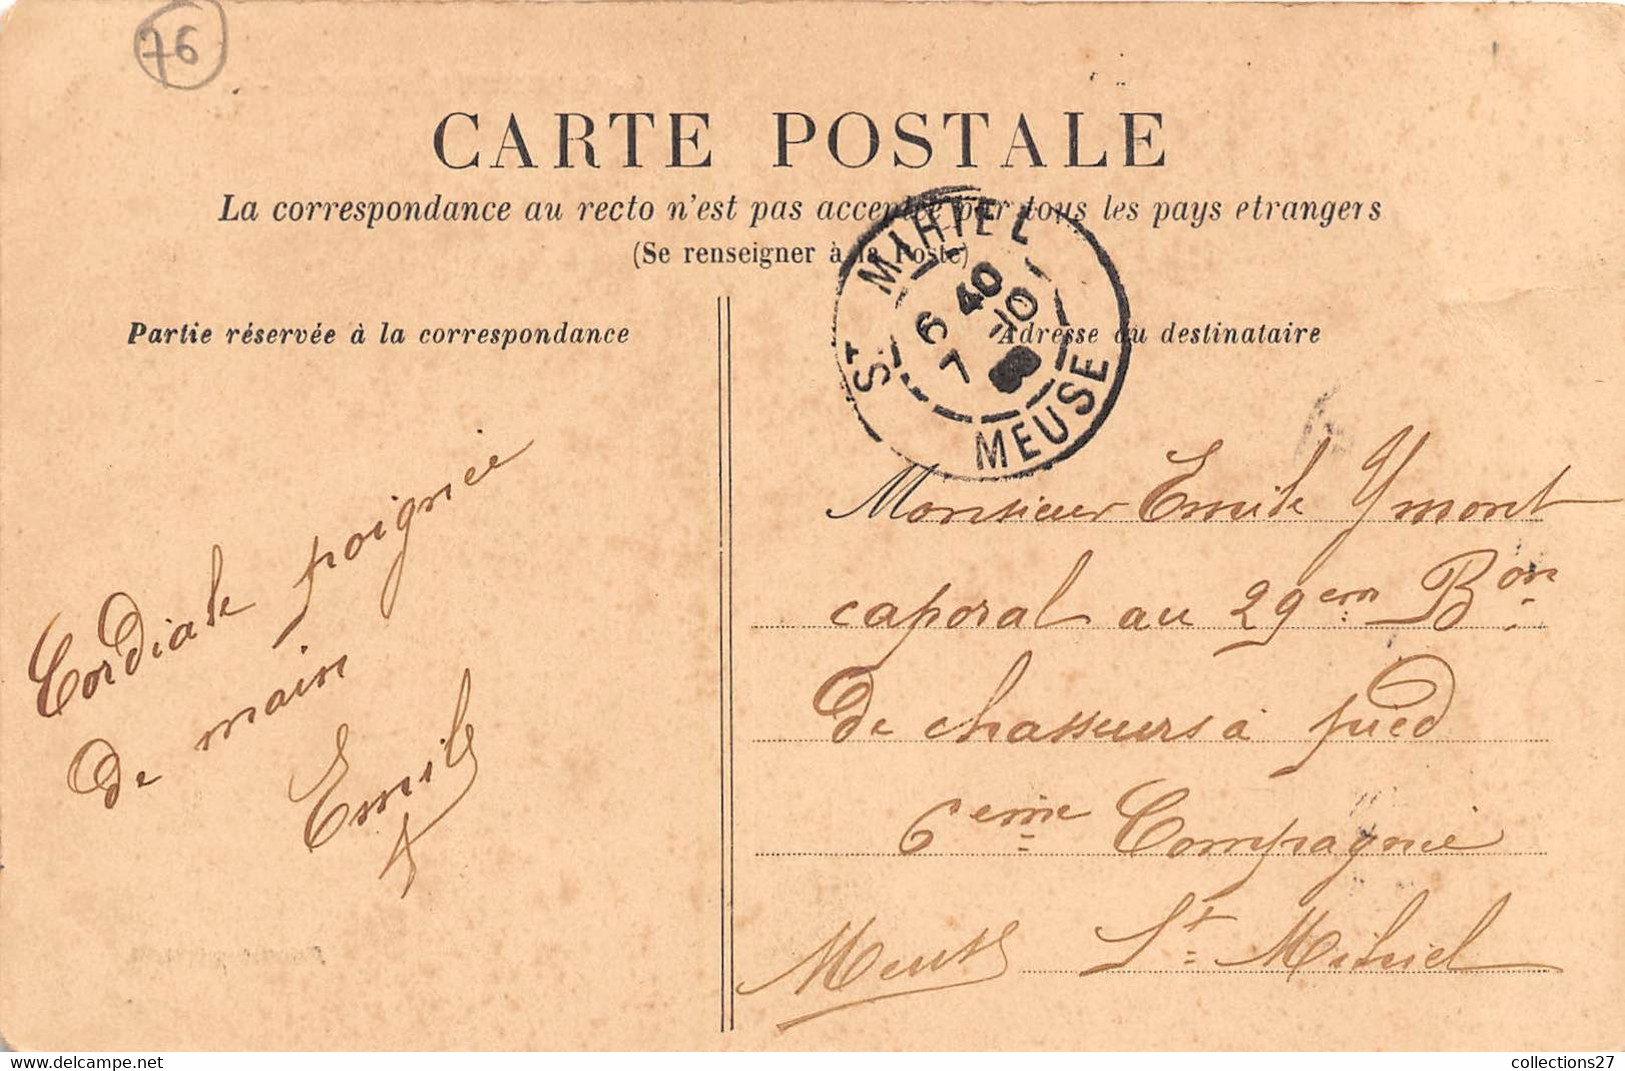 76
CARTE POSTALE
La correspondance au recto n'est pas acceptée par tous les pays etrangers
(Se renseigner à la Poste)
ST MIHIEL
6 40
7 -10
MEUSE
Partie réservée à la correspondance
Cordiale poignée
de main
Emile
Adresse du destinataire
Monsieur Emile Ymont
caporal au 29em Bon
de chasseurs à pied
6eme Compagnie
St Mihiel
Meuse
https://www.delcampe.net
collections27